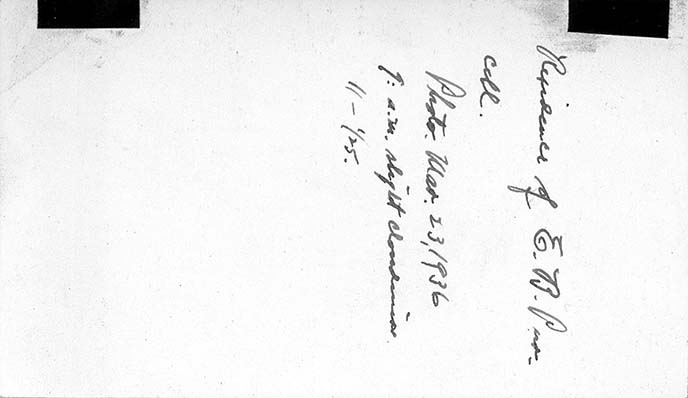 Residence of E. B. Pur-
cell.
Photo. Mar. 23, 1936
9: a.m. slight cloudiness.
11 - 1/25.